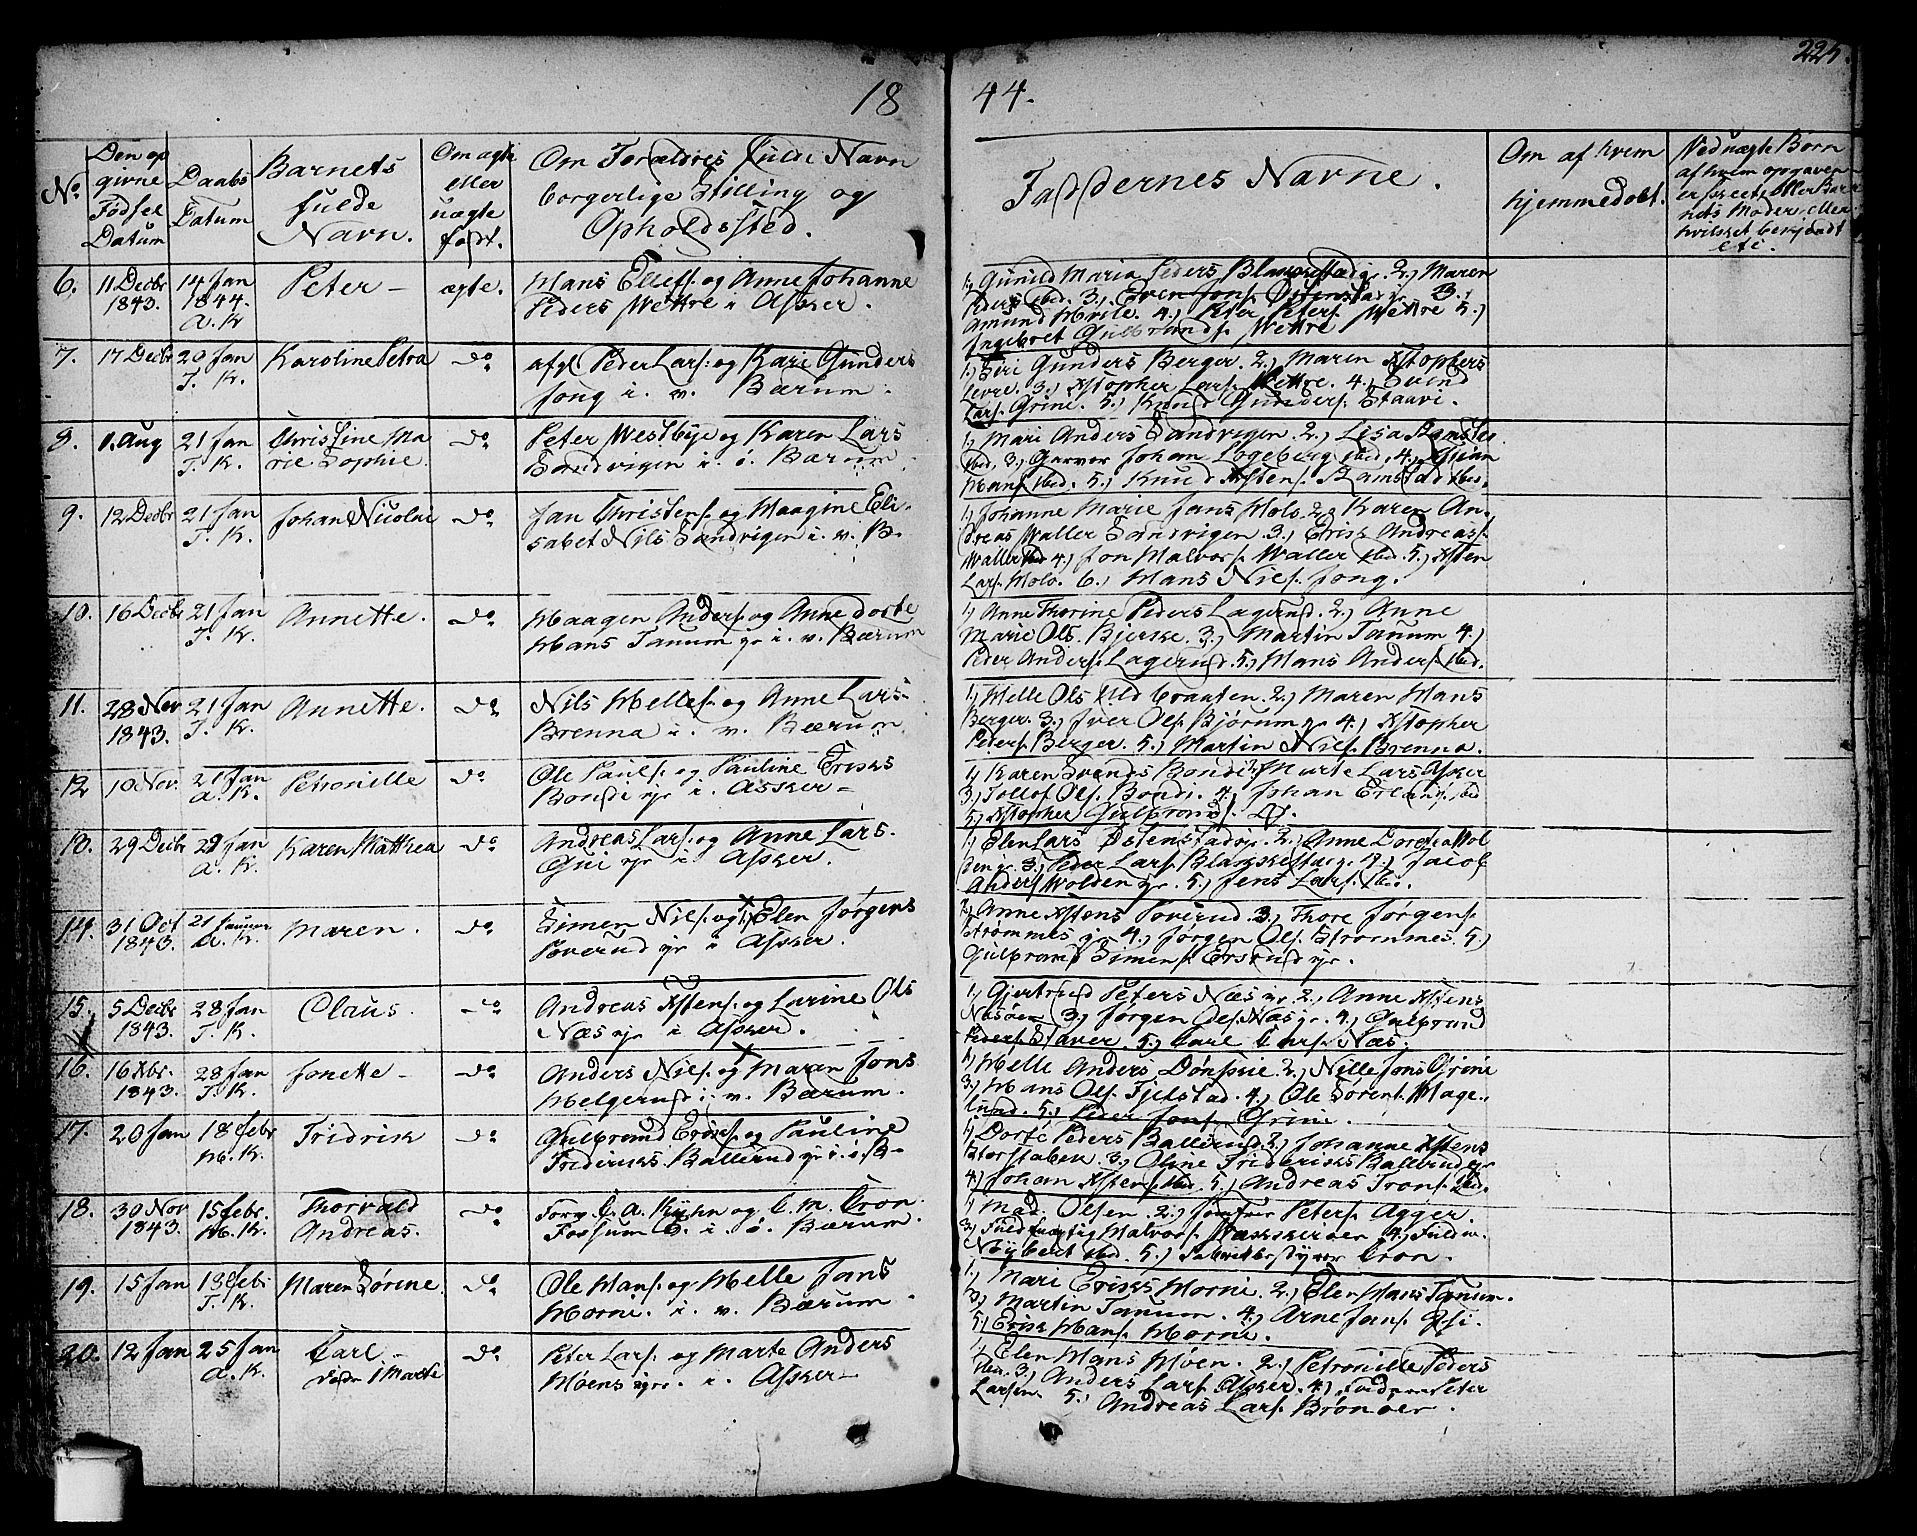 225.
18 44.
No.
Den op
givne
Fødsel
Datum
Daabs
Datum
Barnets
fulde
Navn.
Om ægte
eller
uægte
født.
Om Forældres fulde Navn
borgerlige Stilling og
Opholdssted.
Faddernes Navne.
Om af hvem
hjemmedøbt.
Ved uægte Børn
af hvem opgaven
er skeet, eller Bar
nets Moder, eller
hvilket
6. 11 Decbr 14 Jan Peter – ægte. Hans Ellefs. og Anne Johanne
1843. 1844. Peders Wettre i Asker.
A. K
1, Gunild Maria Peders Blakkestad gr. 2., Maren
Peders ibd. 3., Even Jons. Østenstad gr. 3.,
Amund Hvile. 4., Peter Peters. Wettre 5.,
Ingeboret Gulbrands. Wettre
7. 17 Decbr 20 Jan Karoline Petra do afgl. Peder Lars. og Kari Gunders
T. K. Jong i. v. Bærum.
1., Siri Gunders Berger. 2., Maren Xstophers
Levre. 3., Xstopher Lars. Wettre. 4., Svend
Lars. Grini. 5., Knud Gunders. Staavi.
8. 1. Aug 21 Jan Christine Ma do Peter Westbye og Karen Lars
T. K. rie Sophie. Sandvigen i. ø. Bærum.
1, Mari Anders Sandvigen 2., Lisa Ramstad
ibid. 3., Garver Johan Løgeberg ibid. 4., Stian
Hans. ibid. 5., Knud Xstens. Ramstad ibid.
9. 12 Decbr 21 Jan Johan Nicolai do Jan Christens. og Maagine Eli-
T. K. sabet Nils Sandvigen i. v. B.
1, Johanne Marie Jans Holo. 2., Karen An-
dreas Waller Sandvigen. 3., Erik Andreas.
Waller ibid 4., Jon Halvors. Waller ibid. 5., Xsten
Lars. Holo. 6., Hans Niels. Jong.
10. 16 Decbr 21 Jan Annette. do Haagen Anders. og Anne Dorte
T. K. Hans Tanum gr i. v. Bærum
1, Anne Thorine Peders Lagerud. 2., Anne
Marie Ols. Bjerke. 3., Martin Tanum 4.,
Peder Anders. Lagerud. 5., Hans Anders. ibid.
11. 28 Nov 21 Jan Annette. do Nils Helles. og Anne Lars.
1843. T. K. Brenna i. v. Bærum.
1, Helle Ols Uldbraaten. 2., Maren Hans
Berger. 3., Iver Ols. Bjørum gr 4., Xstopher
Peders. Berger. 5., Martin Niels. Brenna.
12 10 Nov. 21 Jan Petronille do Ole Pauls. og Pauline Eriks
A. K. Bondi gr i Asker –
1, Karen Svends Bondi 2., Marte Lars Asker
3., Tollof Ols. Bondi. 4., Johan Erlands. ibid
5., Xstopher Gulbrands.
13. 29 Decbr 29 Jan Karen Matthea do Andreas Lars. og Anne Lars.
A. K. Gui gr i Asker.
1., Elen Lars Østenstad gr. 2., Anne Dorthea Hol
den gr. 3., Peder Lars. Blakkestad gr. 4., Jacob
Anders Wolden gr. 5., Jens Lars. ibd.
14. 31 Oct 21 Januar Maren. do Simen Niels. og 1) Elen Jørgens
1843. A. K. Poverud gr i Asker.
2, Anne Xstens Poverud. 3., Thore Jørgens.
Strømmes gr. 4., Jørgen Ols. Strømmes. 5.,
Gulbrand Simens. Ersrud gr.
15. 5 Decbr 28 Jan Claus. do Andreas Xstens. og Larine Ols
1843. T. K. Næs gr i Asker.
1, Gjertrud Peters Næs gr. 2., Anne Xstens
Næsøen 3., Jørgen Ols. Næs gr. 4., Gulbrand
Peders. Staver. 5., Carl Lars. Næs.
16. 16 Xbr. 28 Jan Jonette – do Anders Niels. og Maren Jons
1843. T. K. Helgerud i. v. Bærum.
1, Helle Anders Dønski 2., Nille Jons Grini
3., Hans Ols. Fjelstad. 4., Ole Sørens. Hage-
lund. 5., Peder Jons. Grini.
17. 20 Jan 18 febr Fridrik do Gulbrand Eriks. og Pauline
H. K. Frideriks. Ballerud gr i. ø. B-
1, Dorte Peders Ballerud. 2., Johanne Xstens
Storstaben. 3., Oline Frideriks Ballerud gr
4., Johan Xstens. ibd. 5., Andreas Trons. ibid.
18. 30 Nov 15 febr. Thorvald do Forv. C. A. Kühn og C. M. Cron
1843. H. K. Andreas. Fossum i. ø. Bærum.
1, Mad. Olsen. 2., Jomfru Peters. Agger.
3., Fuldmægtig Halvors. Wækkerøen 4., Fuldm.
Nybert ibd. 5., Cron.
19. 15 Jan 18 febr Maren Sørine. do Ole Hans. og Helle Jans
T. K. Horni. i. v. Bærum
1., Mari Eriks Horni. 2., Elen Hans Tanum.
3., Martin Tanum. 4., Arne Jans. Gsi.
5., Erik Hans. Horni.
20. 12 Jan 25 Jan Carl – do Peter Lars. og Marte Anders
A. K. Møens gr. i Asker –
1, Elen Hans Møen. 2., Petronille Peders
ibd. 3., Anders Lars Asker. 4., Peter
Larsen. 5., Andreas Lars. Brønøer.